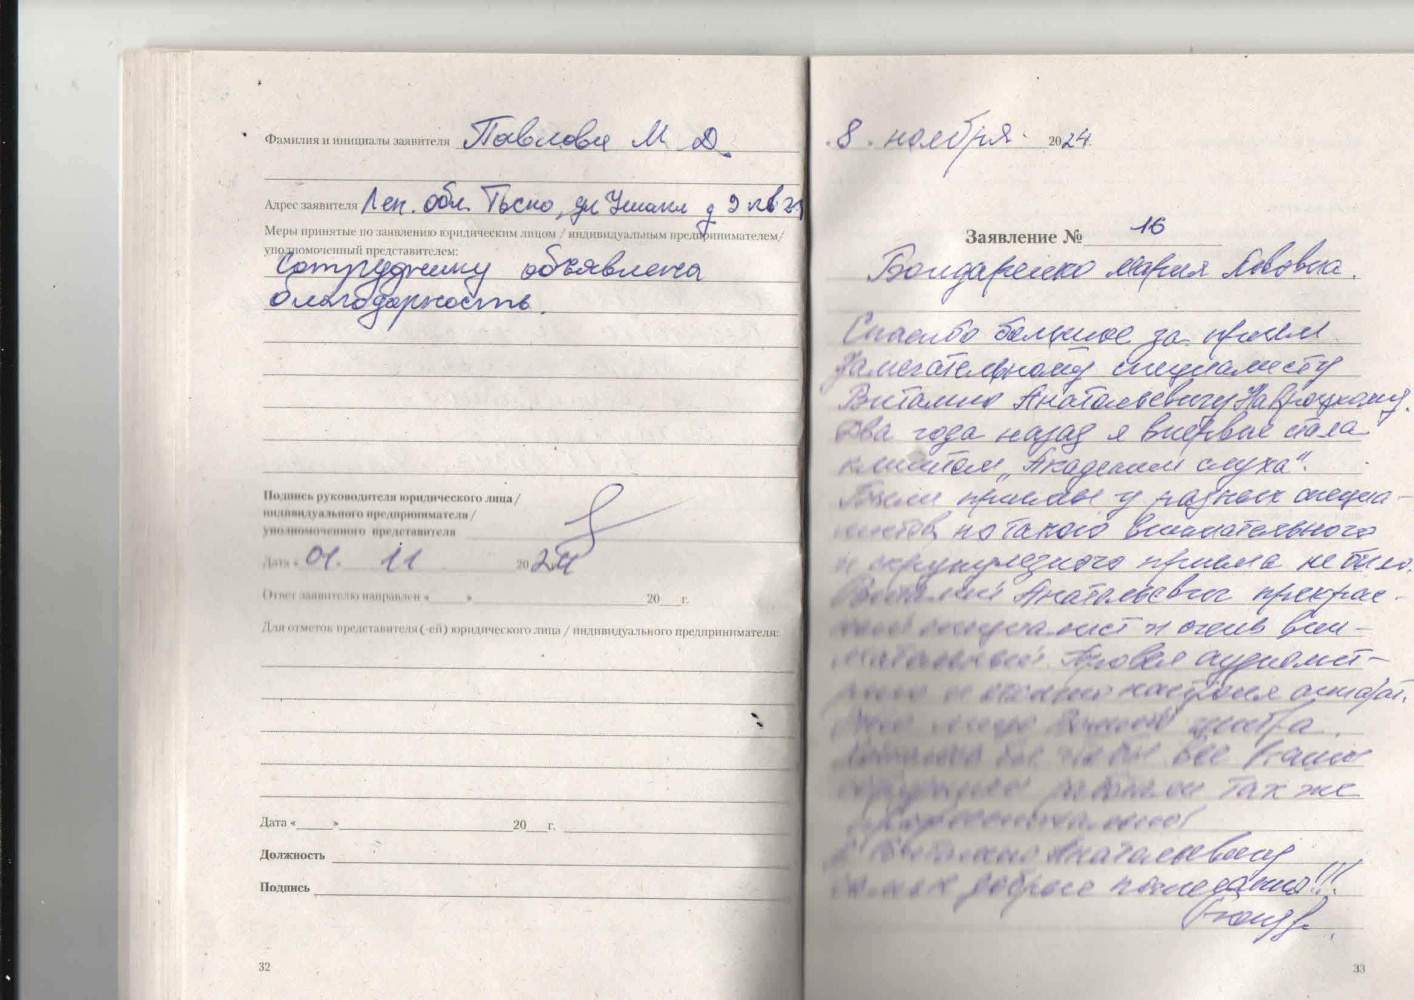 Фамилия и инициалы заявителя Павлова М. Д.
Адрес заявителя Лен. обл. Тосно, ул д 9 кв
Меры принятые по заявлению юридическим лицом / индивидуальным предпринимателем/
уполномоченный представителем:
Сотруднику объявлена
благодарность.
Подпись руководителя юридического лица /
индивидуального предпринимателя /
уполномоченного представителя
Дата « 01 » 11 2024
Ответ заявителю направлен «____»____20___г.
Для отметок представителя (-ей) юридического лица / индивидуального предпринимателя:
Дата «____»____20___г.
Должность
Подпись
32
8. ноября 2024.
Заявление № 16
Бондаренко Мария Львовна.
Спасибо большое за прием
замечательному специалисту
Виталию Анатольевичу Навроцкому.
Два года назад я впервые стала
клиентом „Академии слуха".
Были приемы у разных специа-
листов, но такого внимательного
и скрупулезного приема не было.
Виталий Анатольевич прекрас-
ный специалист и очень вни-
мательный. Провел аудиомет-
рию и отлично настроил аппарат.
Это лицо вашего центра.
Хотелось бы чтобы все ваши
сотрудники работали так же
профессионально!
Виталию Анатольевичу
самые добрые пожелания!!!
33